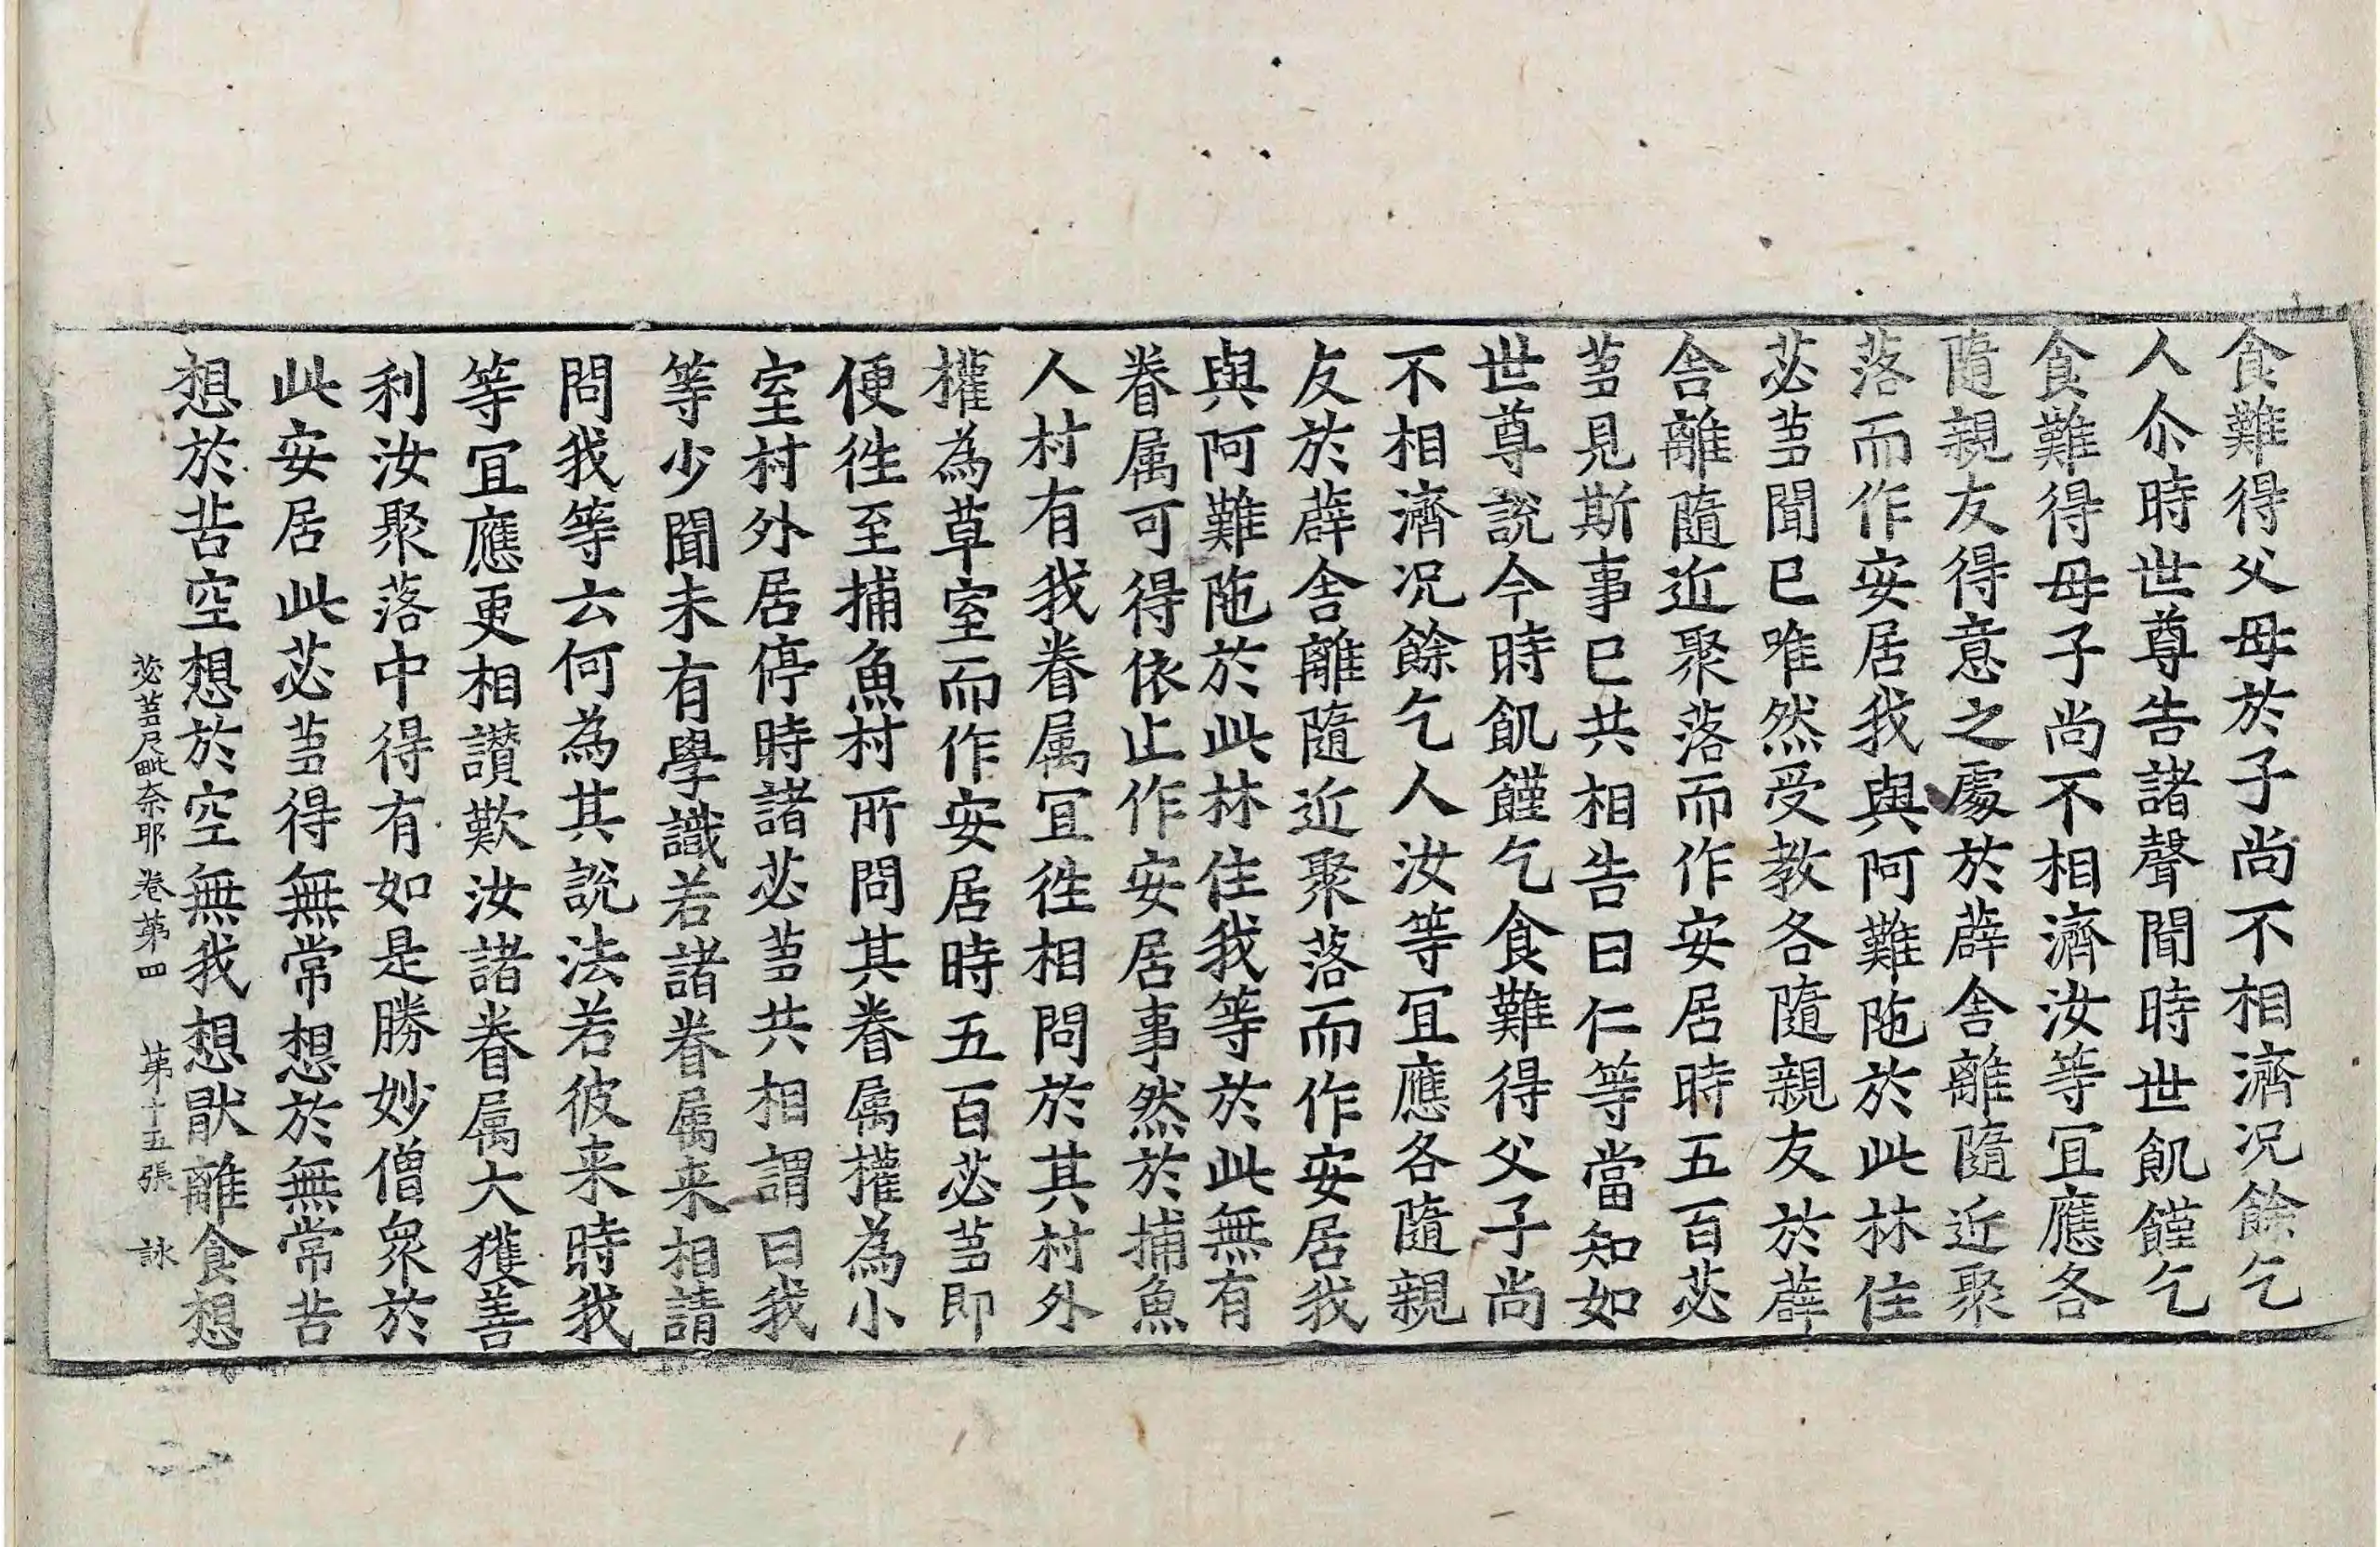 食難得父母於子尚不相濟况餘乞
人尒時世尊告諸聲聞時世飢饉乞
食難得母子尚不相濟汝等冝應各
隨親友得意之處於薜舍離隨近聚
落而作安居我與阿難陁於此林住
苾蒭聞已唯然受教各隨親友於薜
舍離隨近聚落而作安居時五百苾
蒭見斯事已共相告曰仁等當知如
世尊說今時飢饉乞食難得父子尚
不相濟况餘乞人汝等冝應各隨親
友於薜舍離隨近聚落而作安居我
與阿難陁於此林住我等於此無有
眷属可得依止作安居事然於捕魚
人村有我眷属冝徃相問於其村外
權為草室而作安居時五百苾蒭即
便徃至捕魚村所問其眷属權為小
室村外居停時諸苾蒭共相謂曰我
等少聞未有學識若諸眷属来相請
問我等云何為其說法若彼来時我
等冝應更相讃歎汝諸眷属大獲善
利汝聚落中得有如是勝妙僧衆於
此安居此苾蒭得無常想於無常苦
想於苦空想於空無我想猒離食想
苾蒭尼毗奈耶卷第四 第十五張 詠